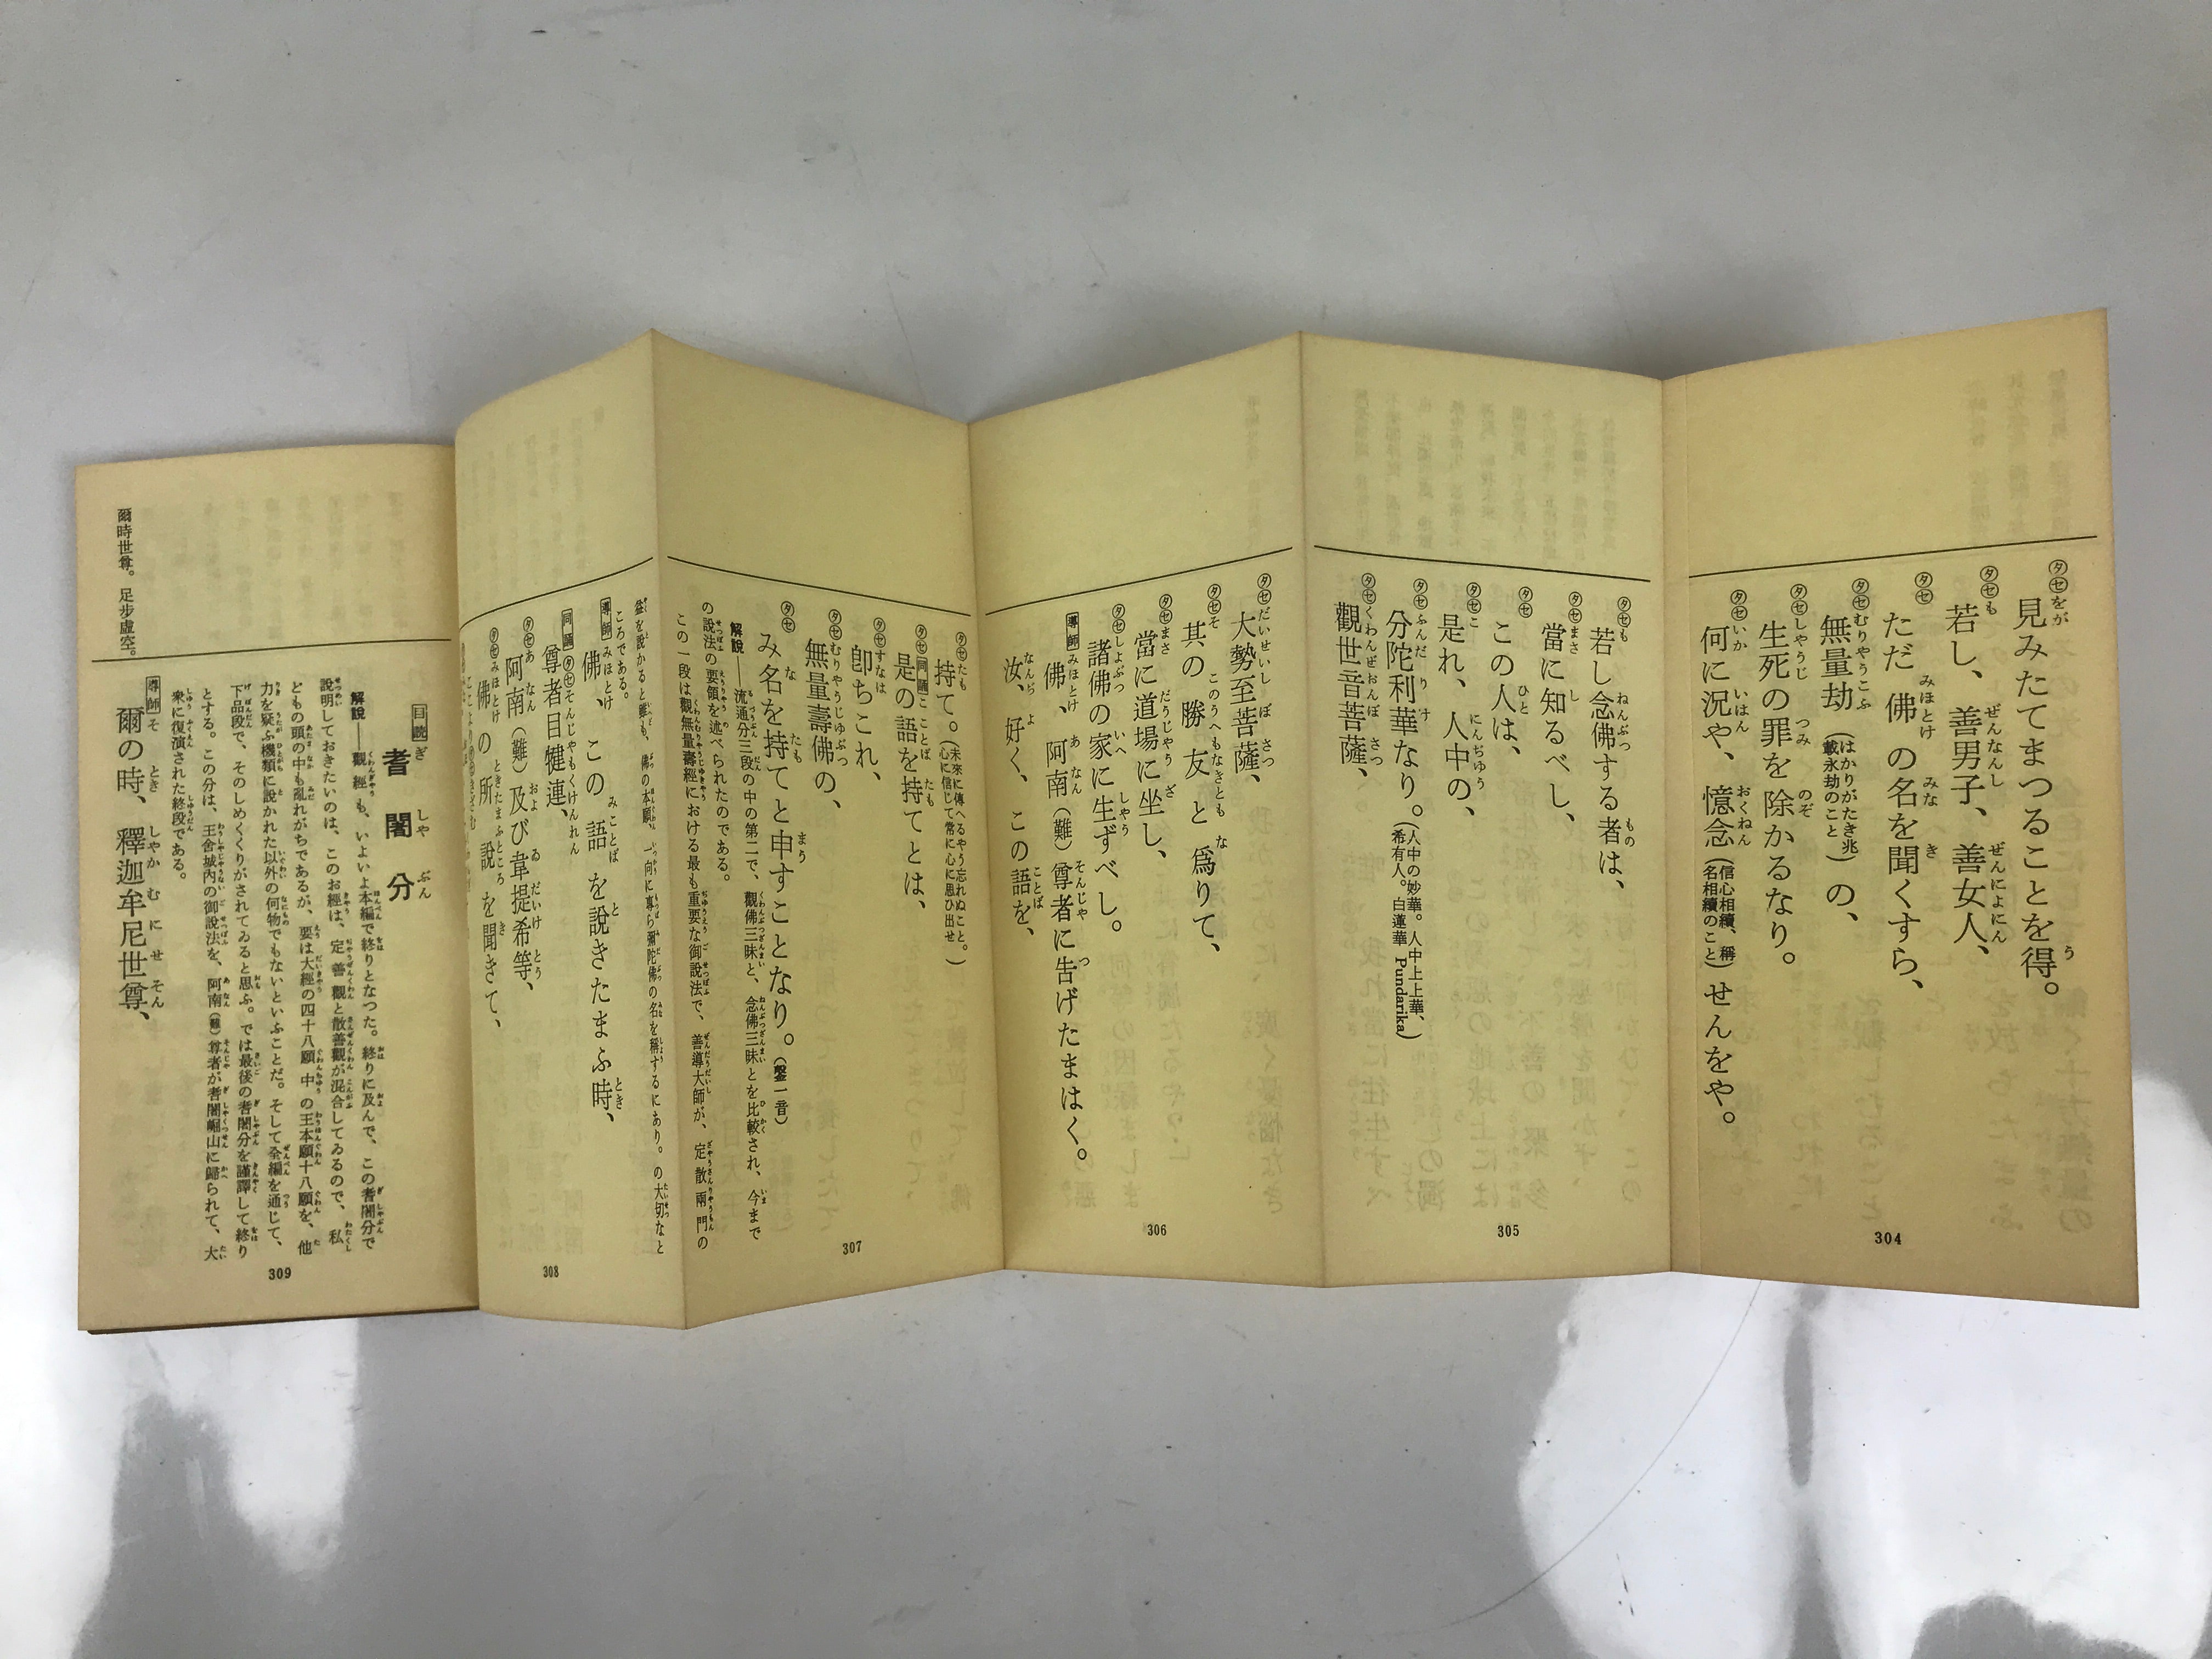 見みたてまつることを得。
若し、善男子、善女人、
ただ佛の名を聞くすら、
無量劫(はかりがたき兆載永劫のこと)の、
生死の罪を除かるなり。
何に況や、憶念(信心相續、稱名相續のこと)せんをや。
304
若し念佛する者は、
當に知るべし、
この人は、
是れ、人中の、
分陀利華なり。(人中の妙華。人中上上華、希有人。白蓮華 Pundarika)
觀世音菩薩、
305
大勢至菩薩、
其の勝友と爲りて、
當に道場に坐し、
諸佛の家に生ずべし。
佛、阿南(難)尊者に告げたまはく。
汝、好く、この語を、
306
持て。(未來に傳へるやう忘れぬこと。心に信じて常に心に思ひ出せ)
是の語を持てとは、
卽ちこれ、
無量壽佛の、
み名を持てと申すことなり。(鏧一音)
解說——流通分三段の中の第二で、觀佛三昧と、念佛三昧とを比較され、今まで
の說法の要領を述べられたのである。
この一段は觀無量壽經における最も重要な御說法で、善導大師が、定散兩門の
307
益を說かると雖も、佛の本願、一向に專ら彌陀佛の名を稱するにあり。の大切なと
ころである。
導師 佛、この語を說きたまふ時、
同誦 尊者目犍連、
阿南(難)及び韋提希等、
佛の所說を聞きて、
308
目読 耆闍分
解說——觀經も、いよいよ本編で終りとなつた。終りに及んで、この耆闍分で
說明しておきたいのは、このお經は、定善觀と散善觀が混合してゐるので、私
どもの頭の中も亂れがちであるが、要は大經の四十八願中の王本願十八願を、他
力を疑ふ機類に說かれた以外の何物でもないといふことだ。そして全編を通じて、
下品段で、そのしめくくりがされてゐると思ふ。では最後の耆闍分を謹譯して終り
とする。この分は、王舍城內の御說法を、阿南(難)尊者が耆闍崛山に歸られて、大
衆に復演された終段である。
爾時世尊。足步虛空。
導師 爾の時、釋迦牟尼世尊、
309